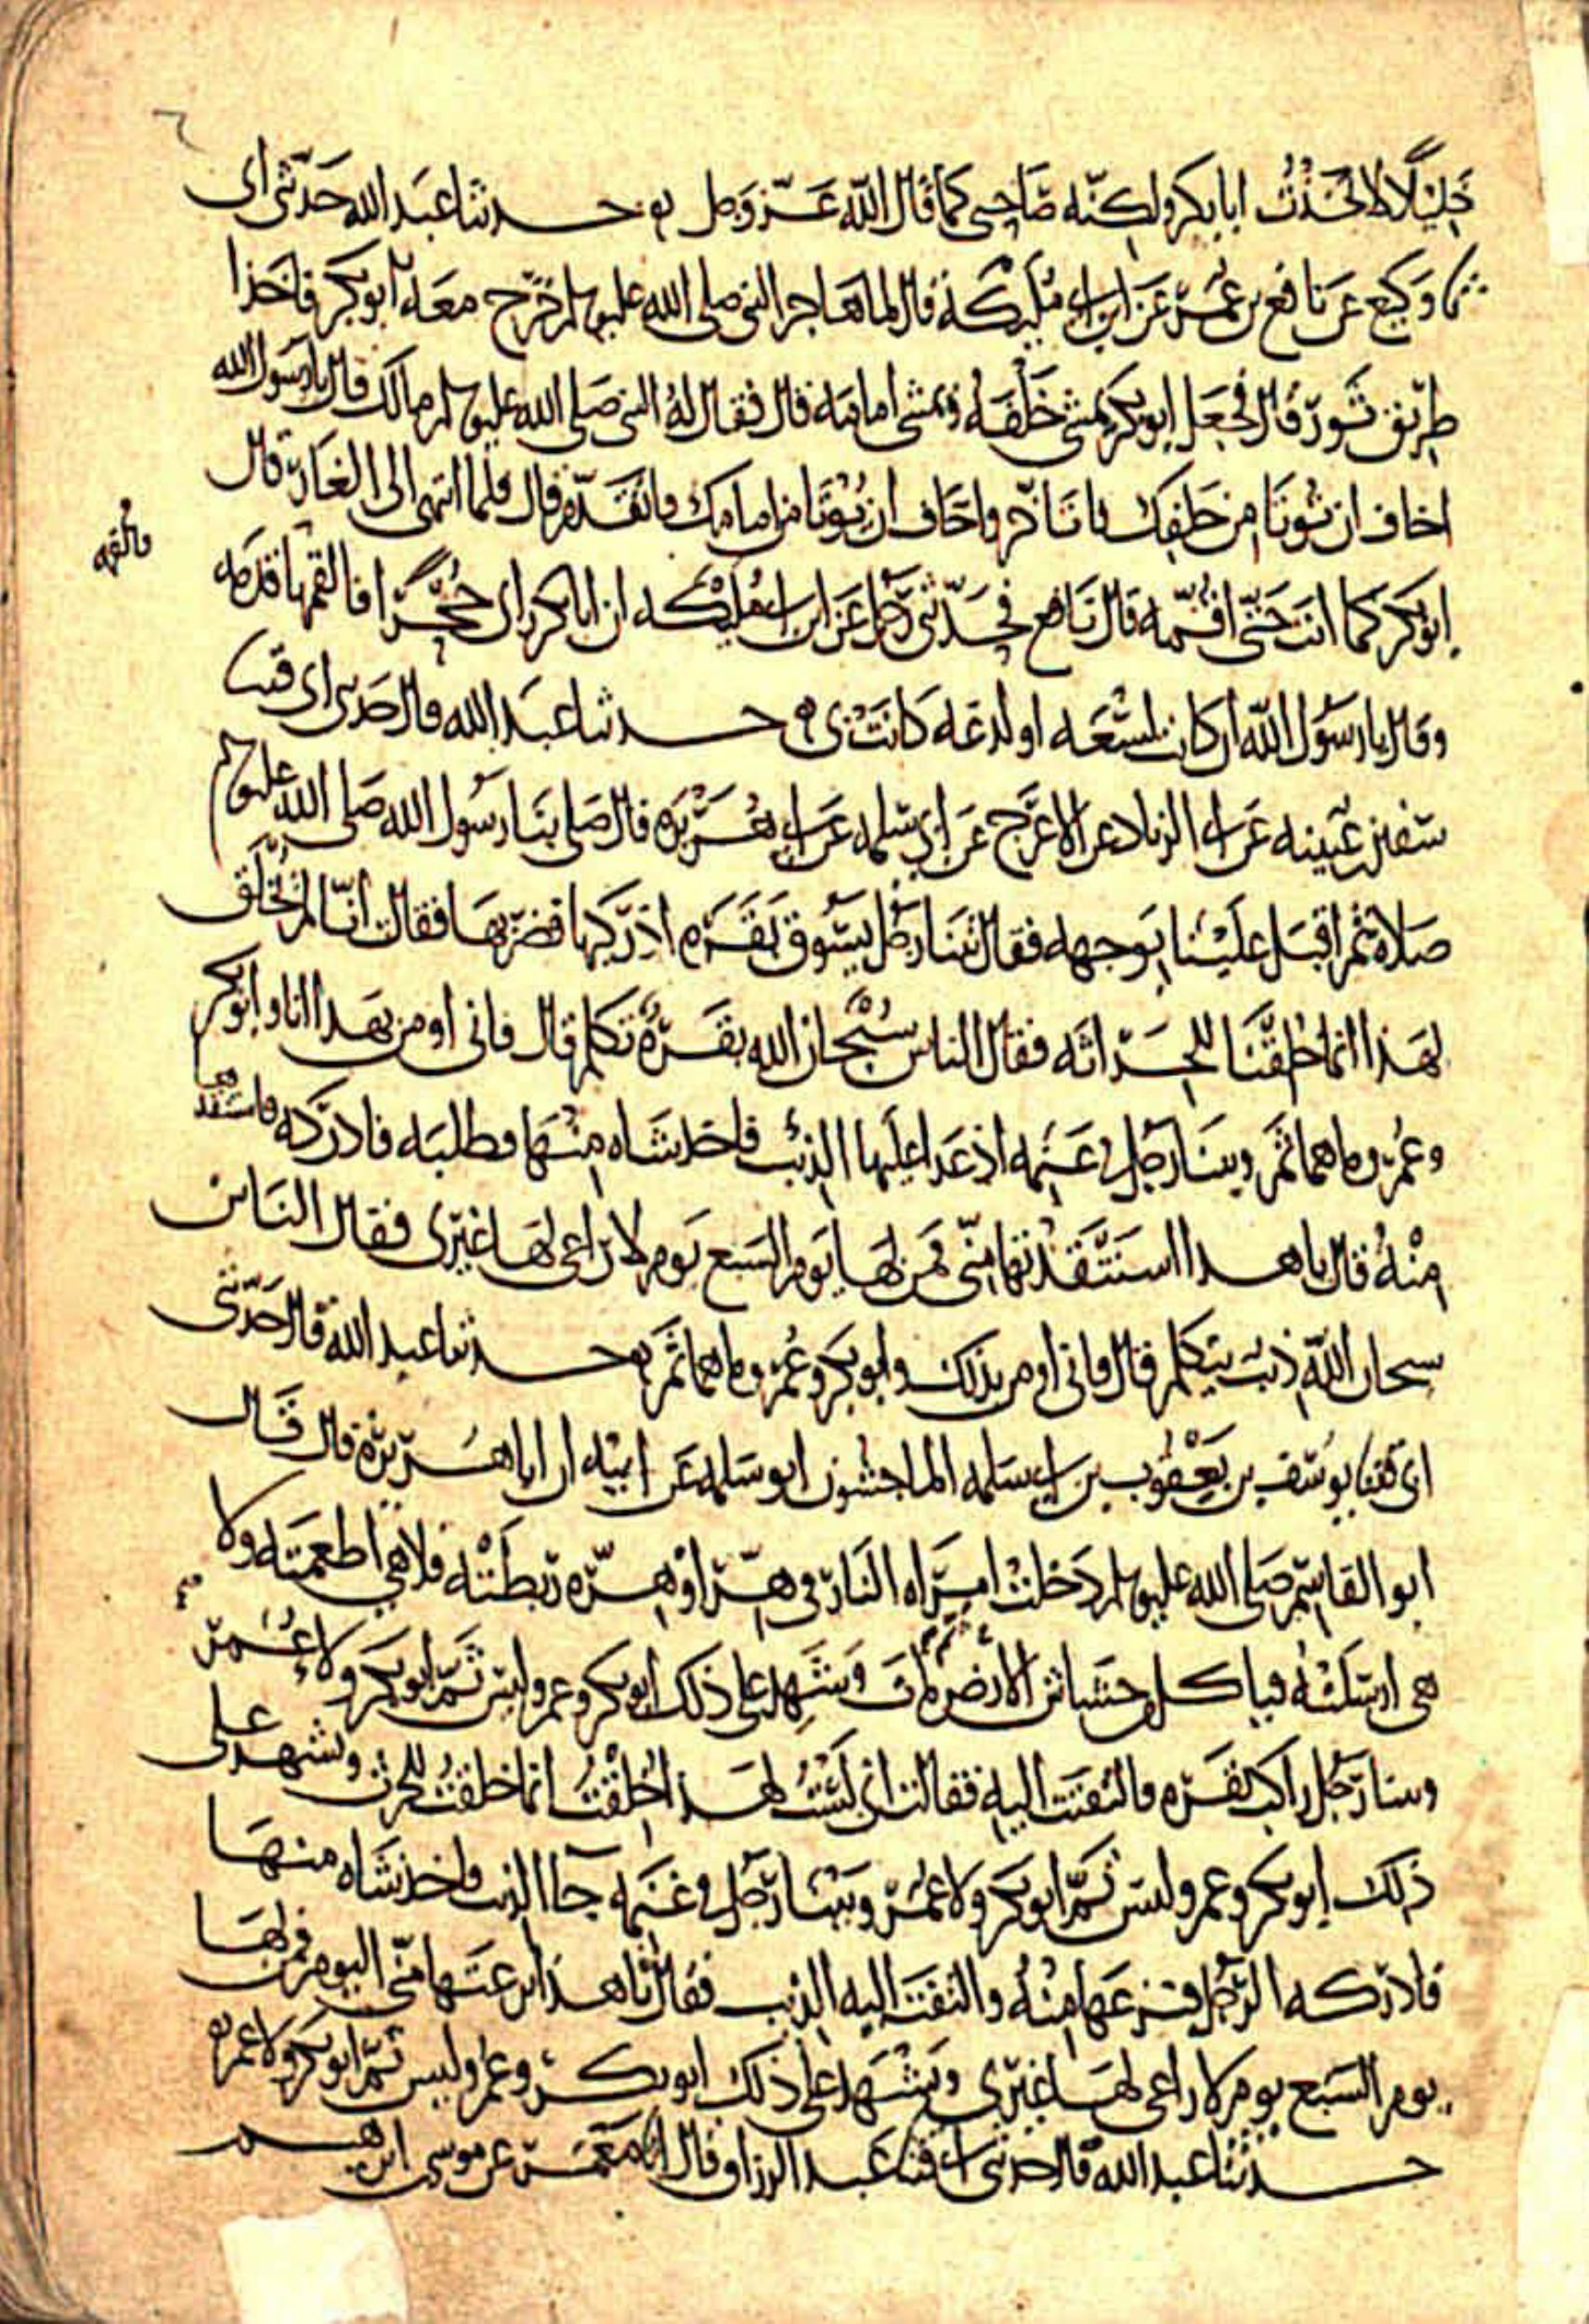 خليلا لاتخذت ابا بكر ولكنه صاحبي كما قال الله عز وجل حدثنا عبد الله حدثني ابي
ثنا وكيع عن نافع بن عمر عن ابن ابي مليكة قال لما هاجر النبي صلى الله عليه وسلم خرج معه ابو بكر فاخذا
طريق ثور قال فجعل ابو بكر يمشي خلفه ويمشي امامه قال فقال له النبي صلى الله عليه وسلم مالك قال يا رسول الله
اخاف ان تؤتا من خلفك فاتاخر واخاف ان تؤتا من امامك فاتقدم قال فلما انتهى الى الغار قال
ابو بكر كما انت حتى اقمه قال نافع فحدثني رجل عن ابن ابي مليكه ان ابا بكر راى جحرا فالقمها قدمه
وقال يا رسول الله ان كان لسعه او لدغه كانت بي حدثنا عبد الله قال حدثني ابي قثنا
سفين بن عيينه عن ابي الزناد عن الاعرج عن ابي سلمه عن ابي هريره قال صلى بنا رسول الله صلى الله عليه وسلم
صلاه ثم اقبل علينا بوجهه فقال بينا رجل يسوق بقره اذ ركبها فضربها فقالت انا لم نخلق
لهذا انما خلقنا للحراثه فقال الناس سبحان الله بقرة تكلم قال فاني اومن بهذا انا وابو بكر
وعمر وما هما ثم وبينا رجل في غنمه اذ عدا عليها الذئب فاخذ شاه منها فطلبه فادركه فاستنقذها
منه قال يا هذا استنقذتها مني فمن لها يوم السبع يوم لا راعي لها غيري فقال الناس
سبحان الله ذئب يتكلم قال فاني اومن بذلك وابو بكر وعمر وما هما ثم حدثنا عبد الله قال حدثني
ابي قثنا يوسف بن يعقوب بن ابي سلمه الماجشون ابو سلمه عن ابيه ان ابا هريرة قال قال
ابو القاسم صلى الله عليه وسلم دخلت امراه النار في هر او هره ربطته فلا هي اطعمته ولا
هي ارسلته فياكل من خشاش الارض مات ويشهد على ذلك ابو بكر وعمر وليس ثم ابو بكر ولا عمر
وبينا رجل راكب بقره فالتفتت اليه فقالت اني لست لهذا خلقت انما خلقت للحرث ويشهد على
ذلك ابو بكر وعمر وليس ثم ابو بكر ولا عمر وبينا رجل في غنمه جا الذئب فاخذ شاه منها
فادركه الرجل فنزعها منه والتفت اليه الذئب فقال يا هذا نزعتها مني اليوم فمن لها
يوم السبع يوم لا راعي لها غيري ويشهد على ذلك ابو بكر وعمر وليس ثم ابو بكر ولا عمر
حدثنا عبد الله قال حدثني ابي قثنا عبد الرزاق قال انا معمر عن موسى ابن ابرهيم
فالقمه